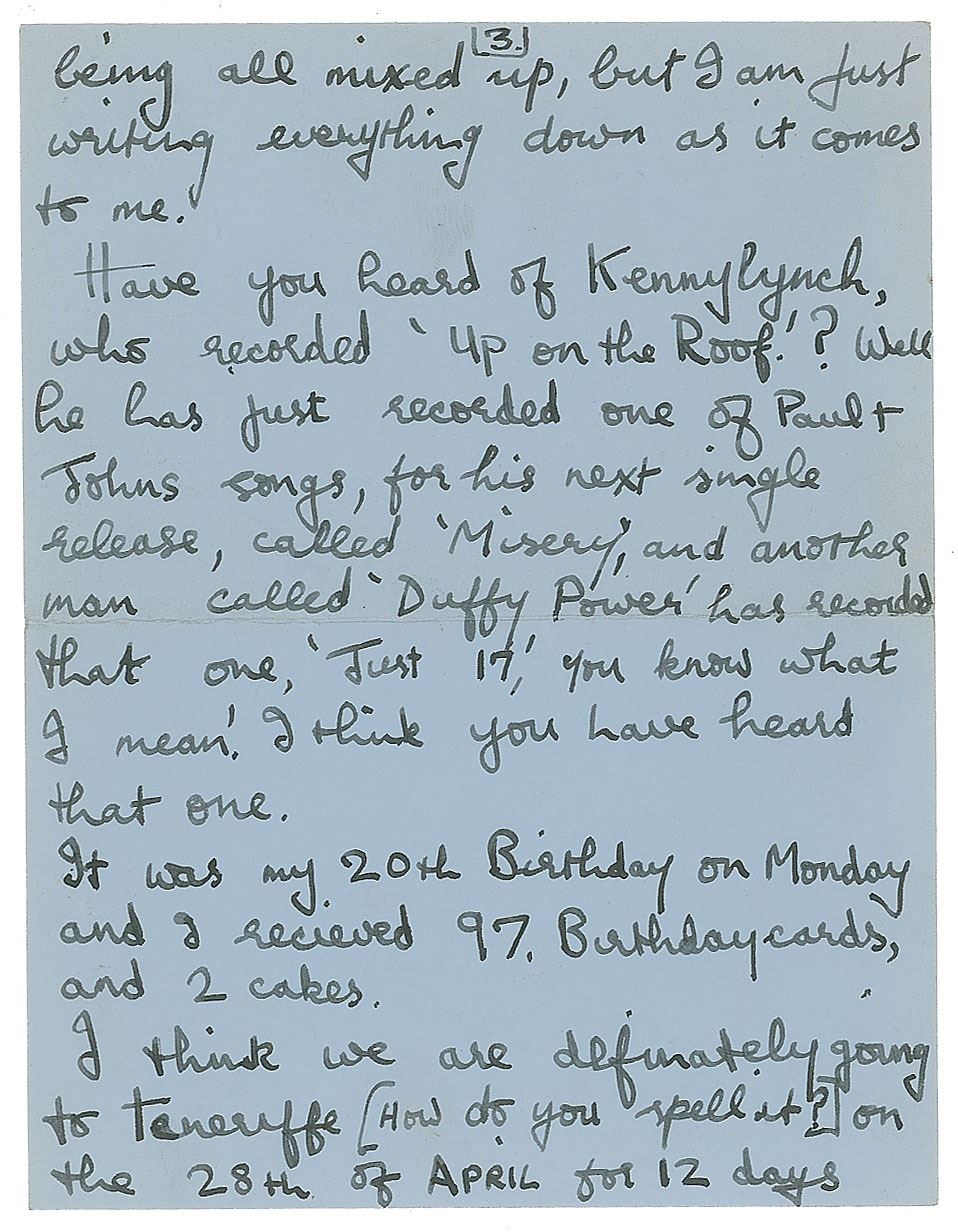 [3.]
being all mixed up, but I am just
writing everything down as it comes
to me.
Have you heard of Kenny Lynch,
who recorded 'Up on the Roof.'? Well
he has just recorded one of Paul +
Johns songs, for his next single
release, called 'Misery', and another
man called 'Duffy Power' has recorded
that one, 'Just 17,' you know what
I mean'. I think you have heard
that one.
It was my 20th Birthday on Monday
and I recieved 97. Birthday cards,
and 2 cakes.
I think we are deffinately going
to Teneriffe [How do you spell it?] on
the 28th of APRIL for 12 days